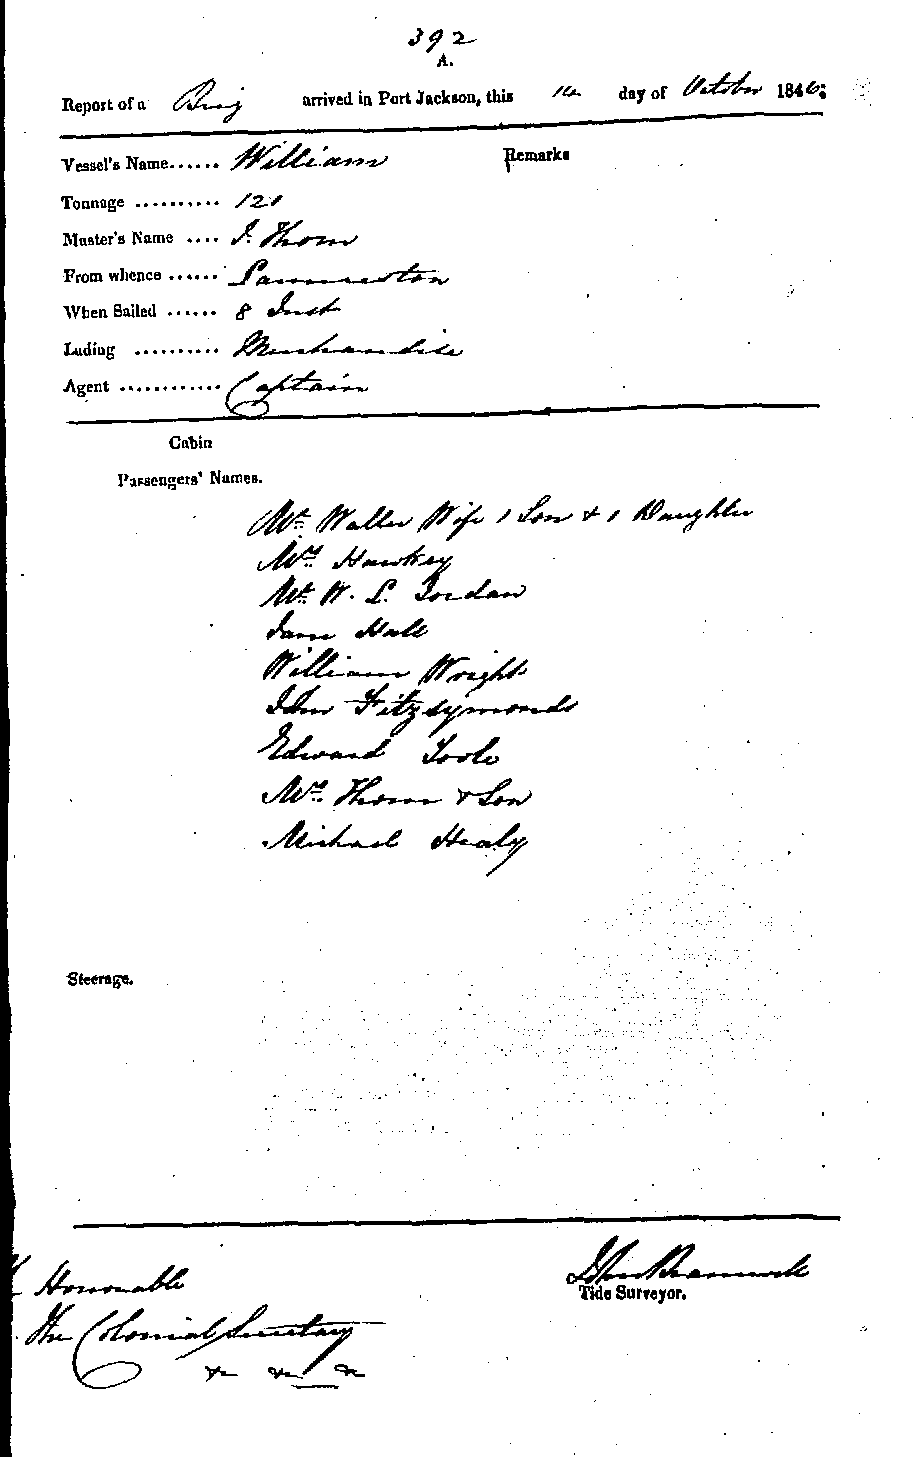 392
A.
Report of a Brig arrived in Port Jackson, this day of October 1846:
Vessel's Name...... William Remarks
Tonnage .......... 121
Master's Name .... J. Thom
From whence ...... Launceston
When Sailed ...... 8 Inst
Lading .......... Merchandise
Agent ............ Captain
Cabin
Passengers' Names.
Mr. Waller Wife 1 Son & 1 Daughter
Mrs. Hawkey
Mr. W. L. Jordan
Jane Hall
William Wright
John Fitzsymonds
Edward Toole
Mrs. Thom & Son
Michael Healy
Steerage.
Honourable
The Colonial Secretary
&c &c &c
John Bramwell
Tide Surveyor.